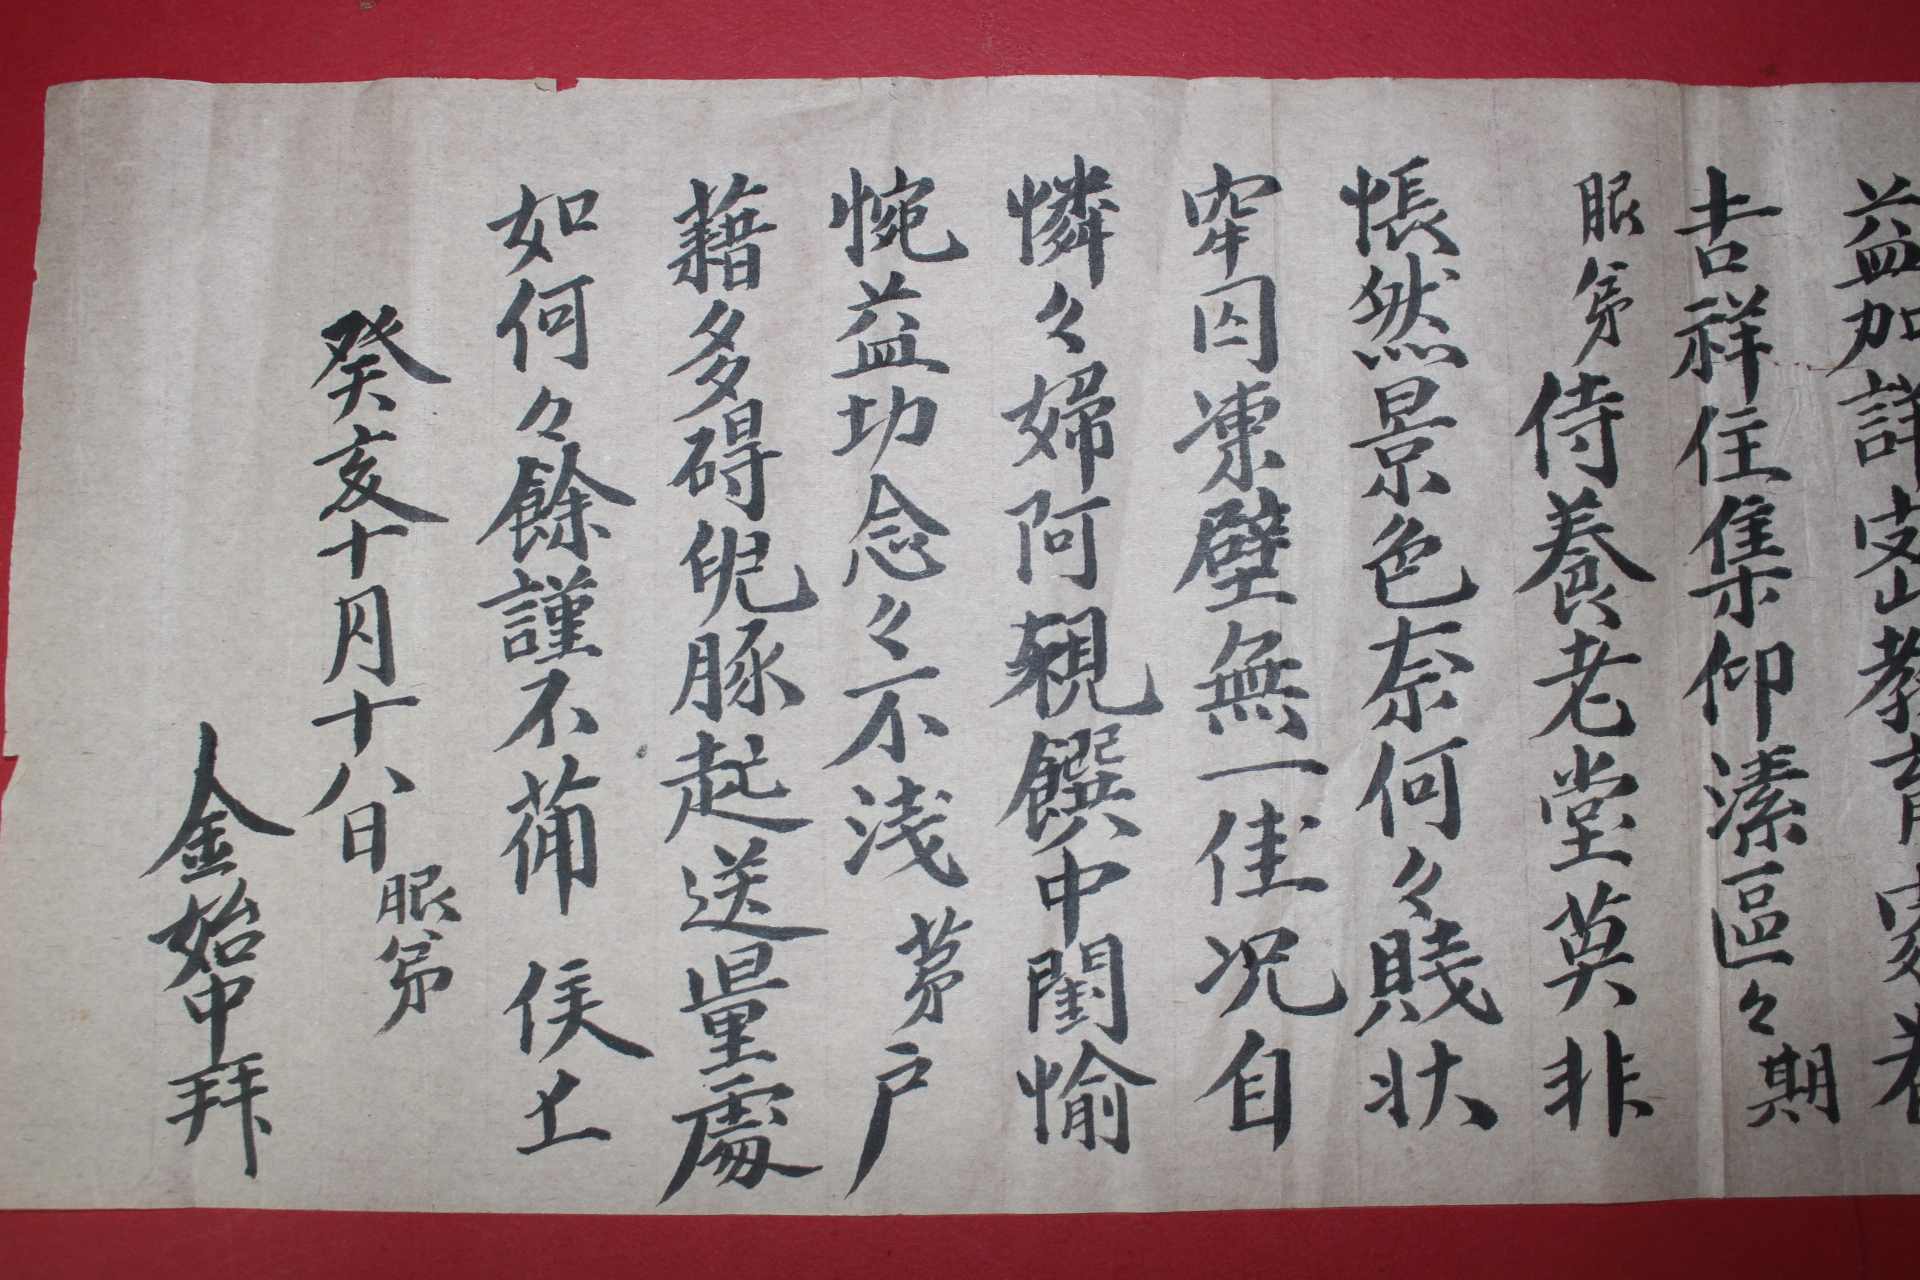 益加詳安山教育內
吉祥住集仰溱區々期
服弟侍養老堂莫非
悵然景色奈何々賤狀
牢囚凍壁無一佳况自
憐々婦阿親饌中閨愉
惋益功念々不淺 茅戶
藉多碍貺豚起送量處
如何々餘謹不備 侯上
癸亥十月十八日 服弟
金始中拜